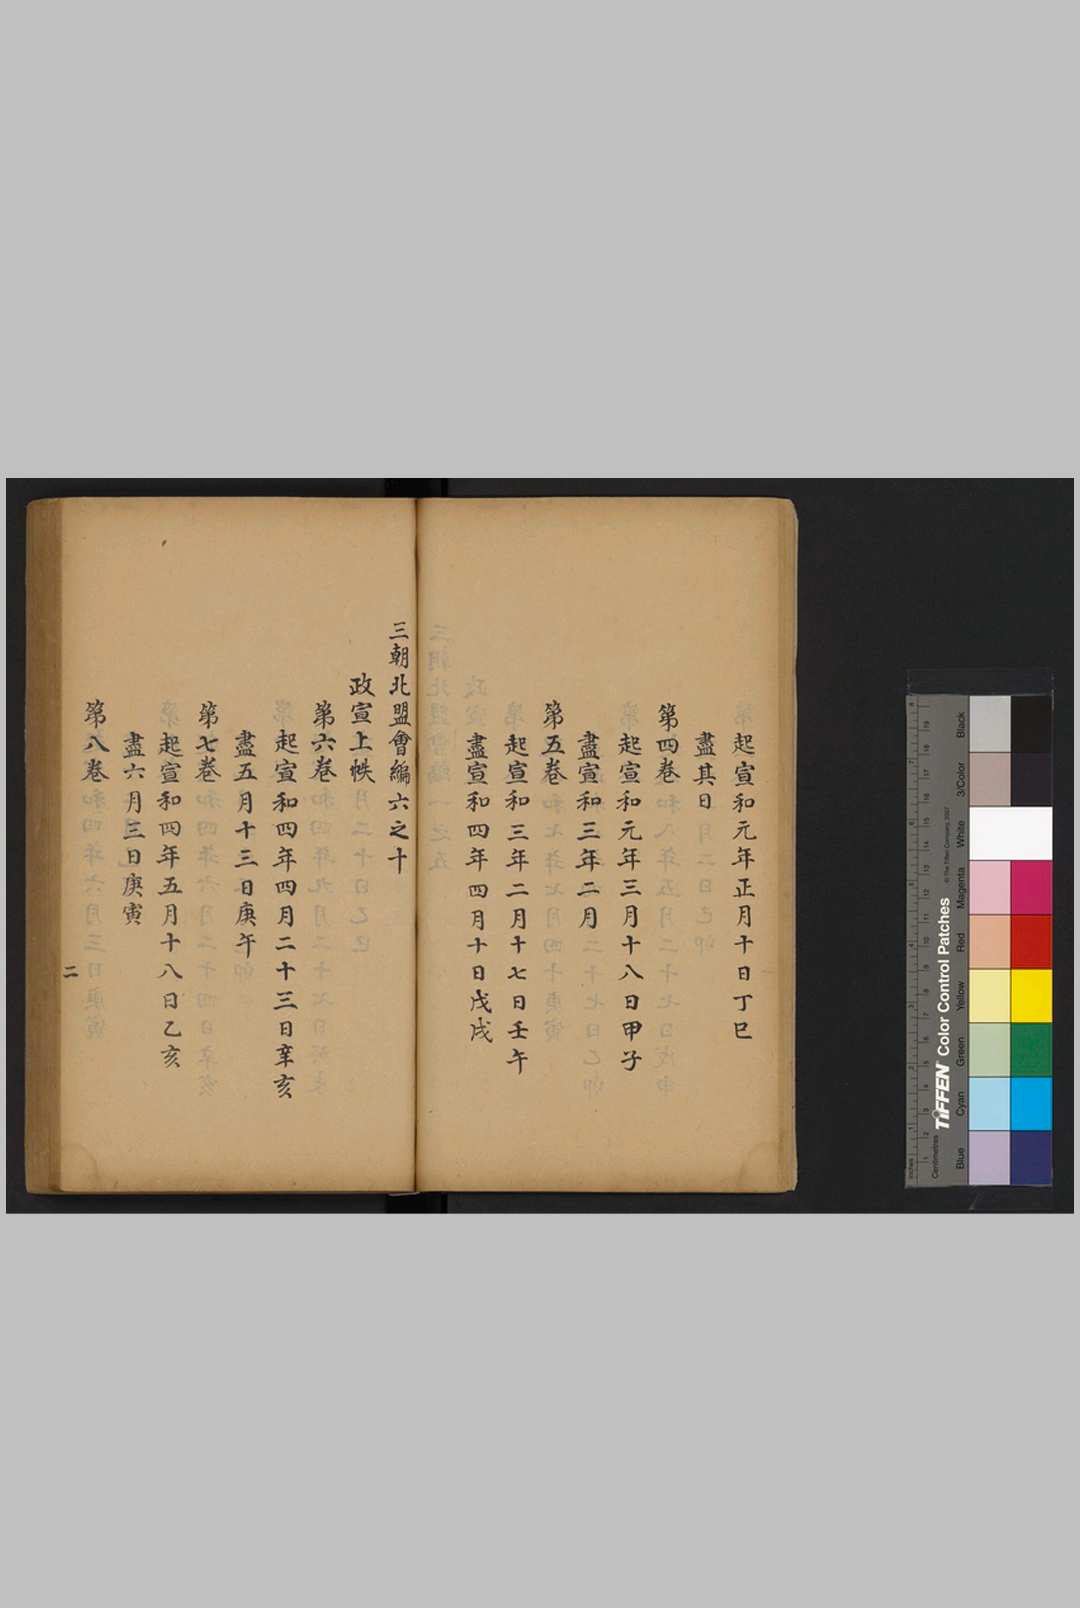 起宣和元年正月十日丁巳
盡其日
第四卷
起宣和元年三月十八日甲子
盡宣和三年二月
第五卷
起宣和三年二月十七日壬午
盡宣和四年四月十日戊戌
三朝北盟會編六之十
政宣上帙
第六卷
起宣和四年四月二十三日辛亥
盡五月十三日庚午
第七卷
起宣和四年五月十八日乙亥
盡六月三日庚寅
第八卷
二
Black
3/Color
White
Magenta
Red
Yellow
Green
Cyan
Blue
TIFFEN Color Control Patches
© The Tiffen Company, 2007
Centimetres
Inches